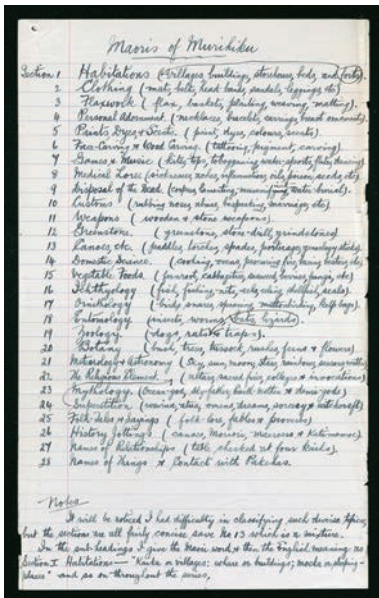 Maoris of Murihiku
Section 1 Habitations (villages, buildings, storehouses, beds, and forts)
2 Clothing (mats, belts, head bands, sandals, leggings etc)
3 Flaxwork (flax, baskets, plaiting, weaving, matting)
4 Personal Adornment (necklaces, bracelets, earrings, breast ornaments)
5 Paints Dyes & Scents. (paint, dyes, colours, scents).
6 Face-Carving & Wood Carving. (tattooing, pigment, carving)
7 Games & Music (kites, tops, tobogganing, water sports, flutes, dancing)
8 Medical Lore (sicknesses, inflammation, oils, poison, etc)
9 Disposal of the Dead. (corpses, burial).
10 Customs (rubbing noses, marriages, etc)
11 Weapons (wooden & stone weapons).
12 Greenstone. (greenstone, stone-drill, grindstones)
13 Canoes, etc. (paddles, torches, spades, sticks)
14 Domestic Science. (cooking, ovens, fire, water, etc)
15 Vegetable Foods (fernroot, cabbagetree, seaweed, berries, fungi, etc)
16 Ichthyology (fish, fishing-nits, eels, shellfish, seals).
17 Ornithology (birds, snares, spearing, muttonbirding, kelp bags).
18 Entomology (insects, worms, lizards).
19 Zoology. (dogs, rats & traps).
20 Botany (bush, trees, tussock, rushes, ferns & flowers)
21 Meteorology & Astronomy (sky, sun, moon, stars, rainbows,
22 The Religious Element. (altars, sacred fires, colleges & invocations)
23 Mythology. (Ocean-god, sky-father, Earth-mother & demi-gods)
24 Superstition (omens, dreams, sorcery & witchcraft)
25 Folk-Tales & Sayings (folk-lore, fables & proverbs)
26 History Jottings (canoes, Moriori,
27 Names of Relationships (table checked at four kaiks).
28 Names of Things & Contact with Pakehas.
Notes
It will be noticed I had difficulty in classifying such diverse topics,
but the sections are all fairly concise save No 13 which is a mixture.
In the sub-headings I give the Maori word & then the English meaning as
Section I Habitations — "Kaika or villages; whare or buildings; moeka or sleeping-
places" and so on throughout the series.